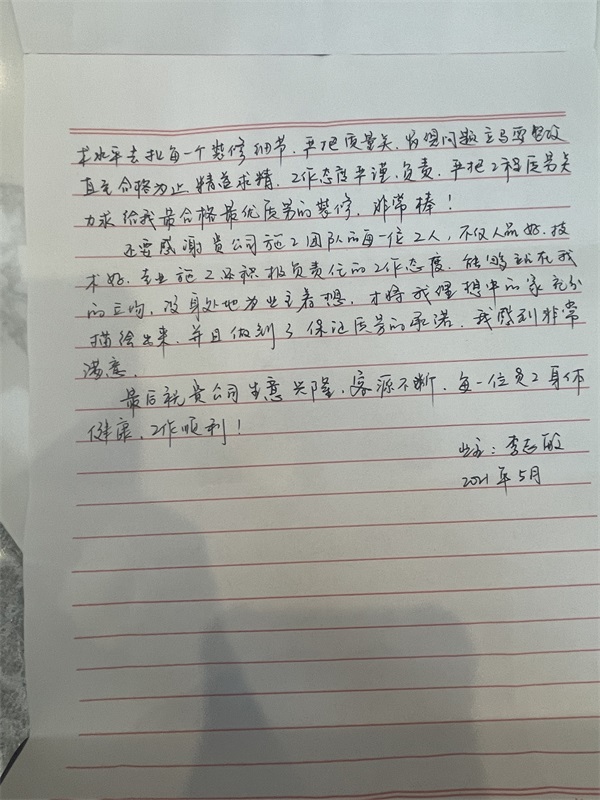 术水平去扣每一个装修细节，严把质量关，发现问题立马要整改
直至合格为止，精益求精，工作态度严谨，负责，严把工程质量关
力求给我最合格最优质量的装修，非常棒！
还要感谢贵公司施工团队的每一位工人，不仅人品好，技
术好，专业施工还积极负责任的工作态度，能够站在我
的立场，设身处地为业主着想，才将我理想中的家充分
描绘出来，并且做到了保证质量的承诺，我感到非常
满意。
最后祝贵公司生意兴隆，客源不断，每一位员工身体
健康，工作顺利！
业主：李志敏
2021年5月